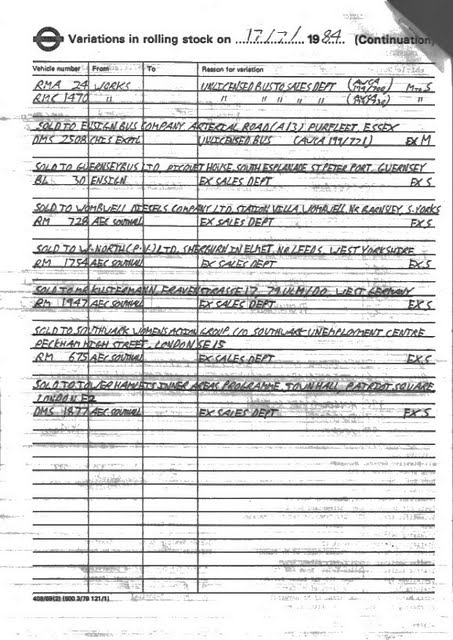 Variations in rolling stock on 17/7/ 1984 (Continuation)
Vehicle number From To Reason for variation
RMA 24 WORKS UNLICENSED BUS TO SALES DEPT M TO S
RMC 1470 " " " " "
SOLD TO ENSIGN BUS COMPANY ARTERIAL ROAD (A13) PURFLEET, ESSEX
DMS 2508 CHIS EXTL UNLICENSED BUS (AWCA 199/721) EX M
SOLD TO GUERNSEYBUS LTD, PICQUET HOUSE, SOUTH ESPLANADE ST PETER PORT, GUERNSEY
BL 30 ENSIGN EX SALES DEPT EX S
SOLD TO WOMBWELL DIESELS COMPANY LTD, STATION VILLA, WOMBWELL, NR BARNSLEY, S. YORKS
RM 728 AEC SOUTHALL EX SALES DEPT EX S
SOLD TO W. NORTH (P.V.) LTD, SHERBURN IN ELMET, NR LEEDS, WEST YORKSHIRE
RM 1754 AEC SOUTHALL EX SALES DEPT EX S
SOLD TO MR KUSTERMANN, FRAUENSTRASSE 17, 79 ULM/DO, WEST GERMANY
RM 1947 AEC SOUTHALL EX SALES DEPT EX S
SOLD TO SOUTHWARK WOMENS ACTION GROUP C/O SOUTHWARK UNEMPLOYMENT CENTRE
PECKHAM HIGH STREET, LONDON SE15
RM 675 AEC SOUTHALL EX SALES DEPT EX S
SOLD TO TOWER HAMLETS INNER AREAS PROGRAMME TOWN HALL, PATRIOT SQUARE
LONDON E2
DMS 1877 AEC SOUTHALL EX SALES DEPT EX S